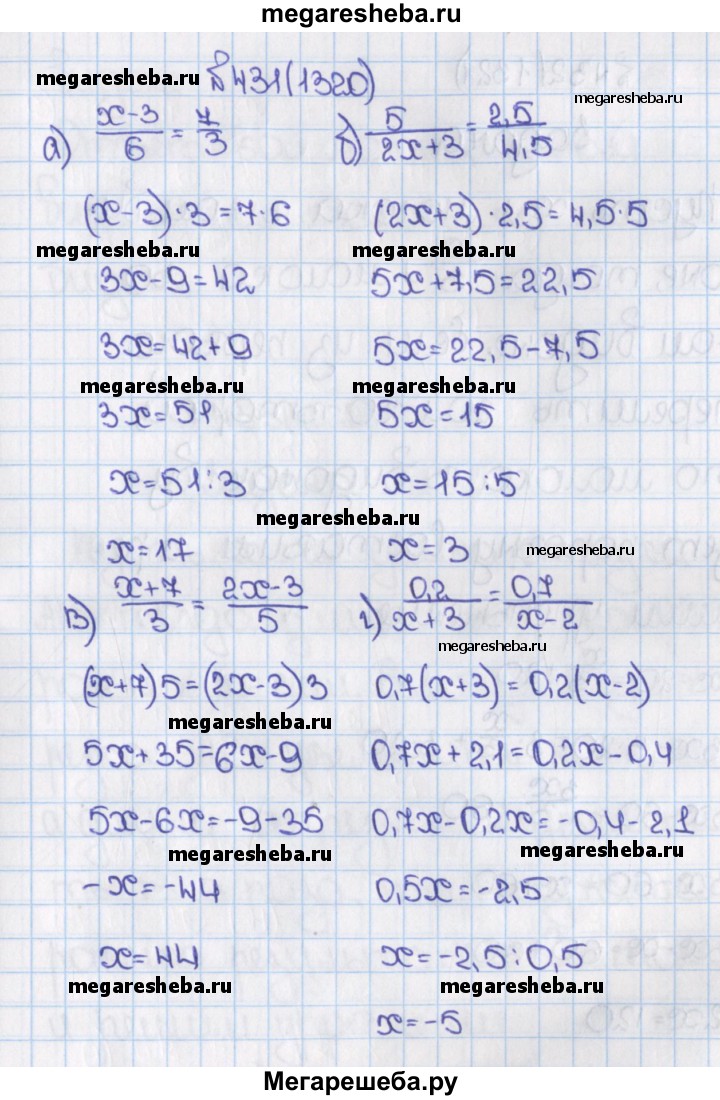 megaresheba.ru
megaresheba.ru №431(1320)
megaresheba.ru
а) x-3/6 = 7/3
(x-3)·3=7·6
megaresheba.ru
3x-9=42
3x=42+9
megaresheba.ru
3x=51
x=51:3
x=17
б) 5/2x+3 = 2,5/4,5
(2x+3)·2,5=4,5·5
megaresheba.ru
5x+7,5=22,5
5x=22,5-7,5
megaresheba.ru
5x=15
x=15:5
megaresheba.ru
x=3
megaresheba.ru
в) x+7/3 = 2x-3/5
(x+7)5=(2x-3)3
megaresheba.ru
5x+35=6x-9
5x-6x=-9-35
megaresheba.ru
-x=-44
x=44
megaresheba.ru
г) 0,2/x+3 = 0,7/x-2
megaresheba.ru
0,7(x+3)=0,2(x-2)
0,7x+2,1=0,2x-0,4
0,7x-0,2x=-0,4-2,1
megaresheba.ru
0,5x=-2,5
x=-2,5:0,5
megaresheba.ru
x=-5
Мегарешеба.ру